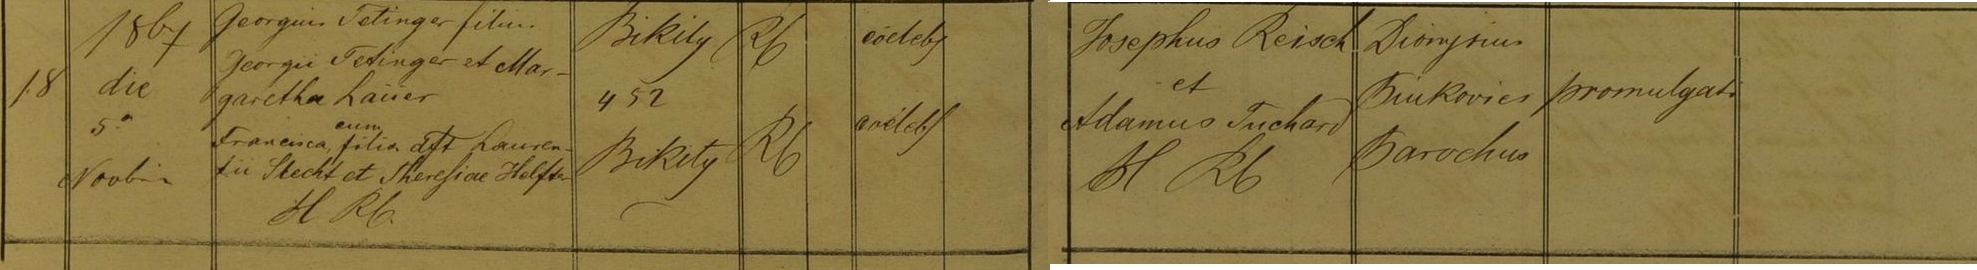 18
1867
die
5ª
Novbris
Georgius Tetinger filius
Georgii Tetinger et Mar-
garetha Lauer
cum
Francisca, filia dft Lauren-
tii Stecht et Theresiae Helfter
H Rb.
Bikity
452
Bikity
Rb
Rb
coelebs
coelebs
Josephus Reisch
et
Adamus Tuchard
H Rb
Dionysius
Biukovics
Parochus
promulgati